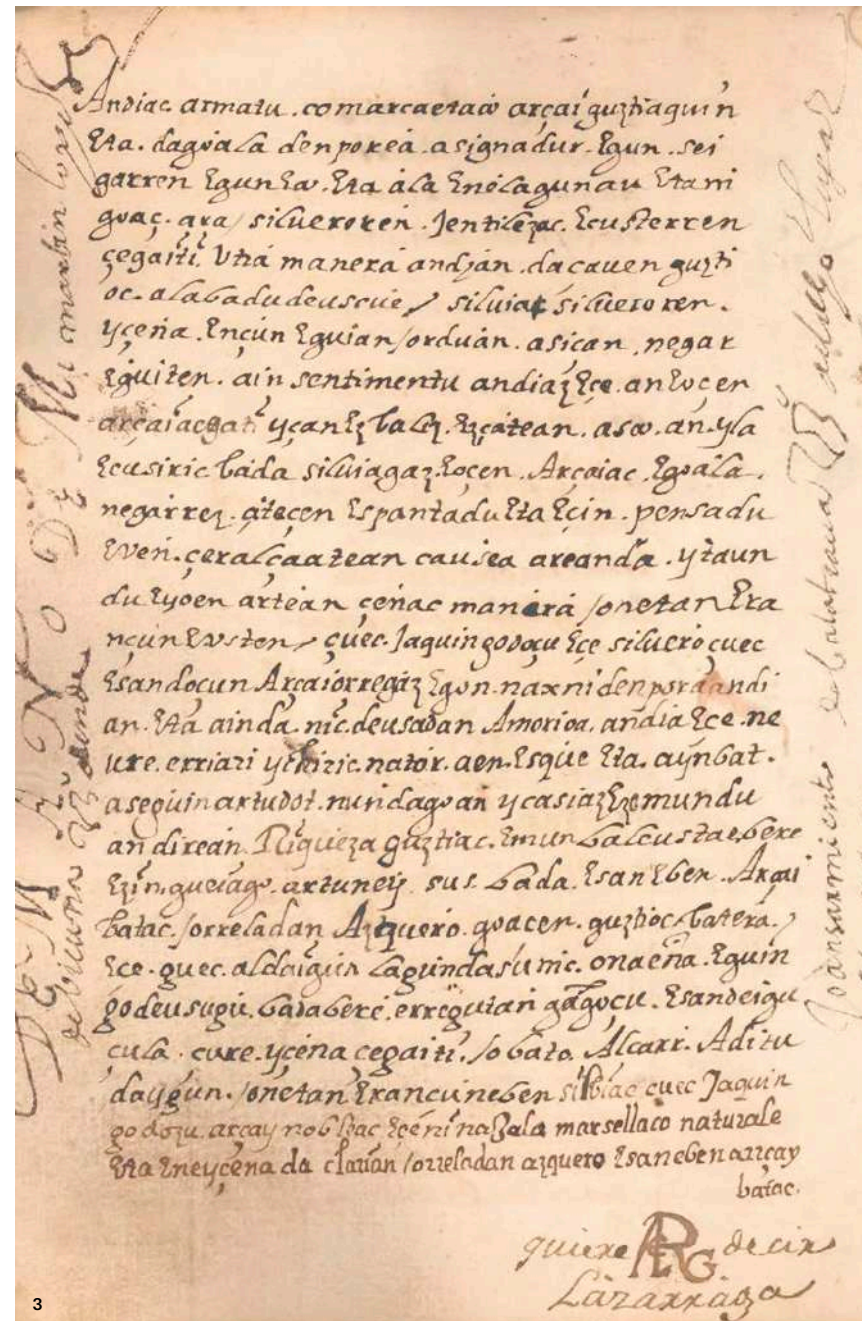 Andiac armatu. comarcaetaco arçai guztiaquin
Eta. dagoala denporea asignadur. Egun. sei
garren Egunev. Eta ala Enelagunau Etani
goaç. ara / silueroren. Jentilezac. Ecusterren
çegaiti. Utra manera andian. dacauen guzti
oc. alabadudeuscue / siluiac silueroren.
yçena. Ençun Eguian / orduan. asican. negar
Eguiten. ain sentimentu andiaz Eçe. an Eoçen
arçaiacgati yçan Ez balz. Ezçatean. asco. an. yla
Ecusiric bada siluiagaz. Eoçen. Arçaiac. Egoala.
negarrez. ateçen Espantadu Eta Eçin. pensadu
Even. çeralçaatean causea areanda. ytaun
du Eyoen artean çeñac manera / onetan Era
nçun Eusten / çuec. Jaquingodoçu Eçe siluero çuec
Esandoçun Arçaiorregaz Egon. naxni denporaandi
an. Eta ainda. nic. deusadan Amorioa. andia Eçe. ne
ure. erriari ychiric. nator. aen. Esque Eta. aynbat.
aseguin artudot. nun dagoan ycasiaz Eze mundu
an direan. Riquieza guztiac. Emun baleustaebere
Ezin. gueiago. artuneiz sus. bada. Esan Eben. Arçai
batac. / orreladan Azquero. goacen. guztioc. batera. /
Ece. guec. aldaigun lagundasunic. onaena. Eguin
godeusugu. badabere. erregutan gagoçu. Esandeigu
çula. çure. yçena çegaiti. / obato. Alcarr. Aditu
daygun. / onetan Erançuneben silbiac çuec Jaquin
godozu. arçay nobleac Eçe ni nazala marsellaco naturale
Eta Eneyçena da clarian / orreladan azquero Esaneben arrçay
batac.
quiere ARG decir
Lazarraga
De Mano De Mi martin lopez
de bicuña dende
Joan sarmiento de balatraua
3